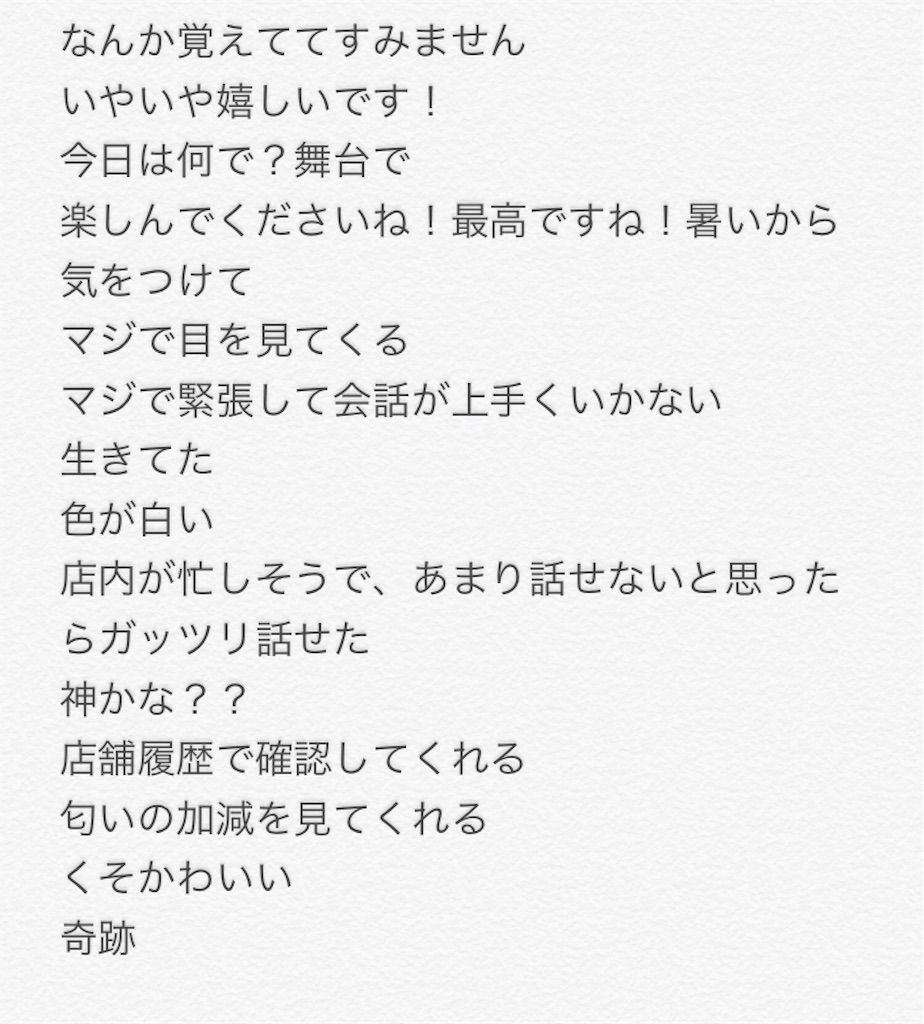 なんか覚えててすみません
いやいや嬉しいです！
今日は何で？舞台で
楽しんでくださいね！最高ですね！暑いから
気をつけて
マジで目を見てくる
マジで緊張して会話が上手くいかない
生きてた
色が白い
店内が忙しそうで、あまり話せないと思った
らガッツリ話せた
神かな？？
店舗履歴で確認してくれる
匂いの加減を見てくれる
くそかわいい
奇跡